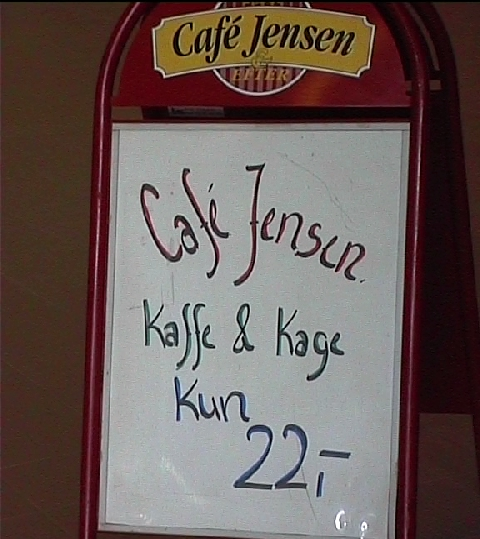 Café Jensen
& EFTER
Café Jensen
Kaffe & Kage
Kun
22,-